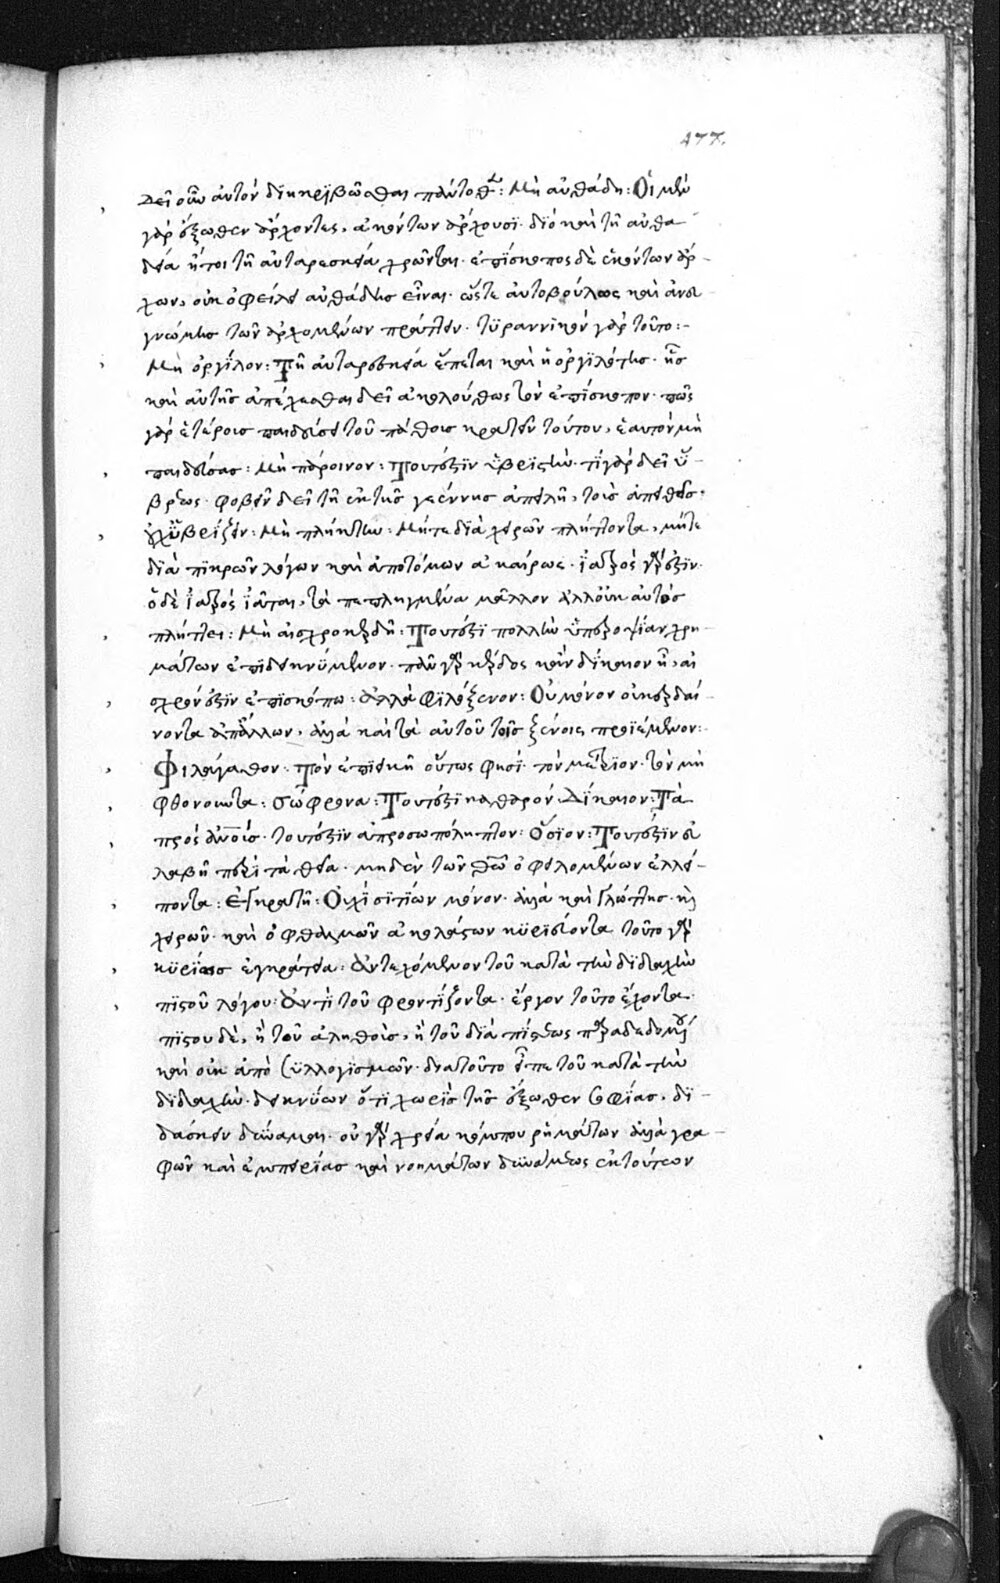 477.
δεῖ οὖν αὐτὸν διηκριβῶσθαι πάντοθεν: Μὴ αὐθάδη: Οἱ μὲν
γὰρ ἔξωθεν ἄρχοντες, ἀκόντων ἄρχουσι· διὸ καὶ τῇ αὐθα
δεία ἤτοι τῇ αὐταρεσκεία χρῶνται· ἐπίσκοπος δὲ ἑκόντων ἄρ-
χων, οὐκ ὀφείλει αὐθάδης εἶναι· ὥστε αὐτοβούλως καὶ ἄνευ
γνώμης τῶν ἀρχομένων πράττειν· τυραννικὸν γὰρ τοῦτο:-
Μὴ ὀργίλον: Τῇ αὐταρεσκεία ἕπεται καὶ ἡ ὀργιλότης· ἧς
καὶ αὐτῆς ἀπέχεσθαι δεῖ ἀκολούθως τὸν ἐπίσκοπον· πῶς
γὰρ ἑτέροις παιδεύσει τοῦ πάθοις κρατεῖν τούτου, ἑαυτὸν μὴ
παιδεύσας: Μὴ πάροινον: Τουτέστιν ὑβριστὴν· τί γὰρ δεῖ ὕ-
βρεως· φοβεῖν δεῖ τῇ ἐκ τῆς γεέννης ἀπειλῇ, τοὺς ἀπειθεῖς·
οὐχ ὑβρίζειν: Μὴ πλήκτην: Μήτε διὰ χειρῶν πλήττοντα, μήτε
διὰ πικρῶν λόγων καὶ ἀποτόμων ἀκαίρως· ἰατρὸς γάρ ἐστιν·
ὁ δὲ ἰατρὸς ἰᾶται, τὰ πεπληγμένα μᾶλλον ἀλλ οὐκ αὐτὸς
πλήττει: Μὴ αἰσχροκερδῆ: Τουτέστι πολλὴν ὑπεροψίαν χρη-
μάτων ἐπιδεικνύμενον· πᾶν γὰρ κέρδος κἂν δίκαιον ᾖ, αἰ
σχρόν ἐστιν ἐπισκόπω: Ἀλλὰ φιλόξενον: Οὐ μόνον οὐ κερδαί-
νοντα ἀπ ἄλλων, ἀλλὰ καὶ τὰ αὐτοῦ τοῖς ξένοις προϊέμενον:
Φιλάγαθον· Τὸν ἐπιεικῆ οὕτως φησί· τὸν μέτριον· τὸν μὴ
φθονοῦντα: σώφρονα: Τουτέστι καθαρόν· Δίκαιον: Τὰ
πρὸς ἀνοὺς· τουτέστιν ἀπροσωπόληπτον: Ὅσιον: Τουτέστιν εὐ
λαβῆ περὶ τὰ θεῖα· μηδὲν τῶν θῶ ὀφειλομένων ἐλλεί-
ποντα: Ἐγκρατῆ: Οὐχὶ σιτίων μόνον· ἀλλὰ καὶ γλώττης· καὶ
χειρῶν· καὶ ὀφθαλμῶν ἀκολάστων κυριεύοντα τοῦτο γὰρ
κυρίως ἐγκράτεια: Ἀντεχόμενον τοῦ κατὰ τὴν διδαχὴν
πιστοῦ λόγου: Ἀντὶ τοῦ φροντίζοντα· ἔργον τοῦτο ἔχοντα·
πιστοῦ δὲ, ἢ τοῦ ἀληθοὺς, ἢ τοῦ διὰ πίστεως παραδεδομένου
καὶ οὐκ ἀπὸ συλλογισμῶν· διὰ τοῦτο εἶπε τοῦ κατὰ τὴν
διδαχὴν· δεικνύων ὅτι χωρὶς τῆς ἔξωθεν σοφίας, δι-
δάσκειν δεῖ, ἅμα· οὐ γὰρ χρεία κόμπου ῥημάτων ἀλλὰ γρα-
φῶν καὶ ἐμπειρίας καὶ νοημάτων δυνάμεως ἐκ τούτων